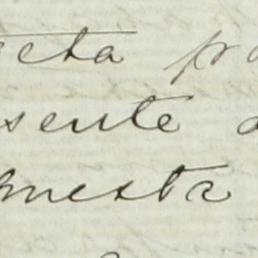 ecta pa
sente a
muesta